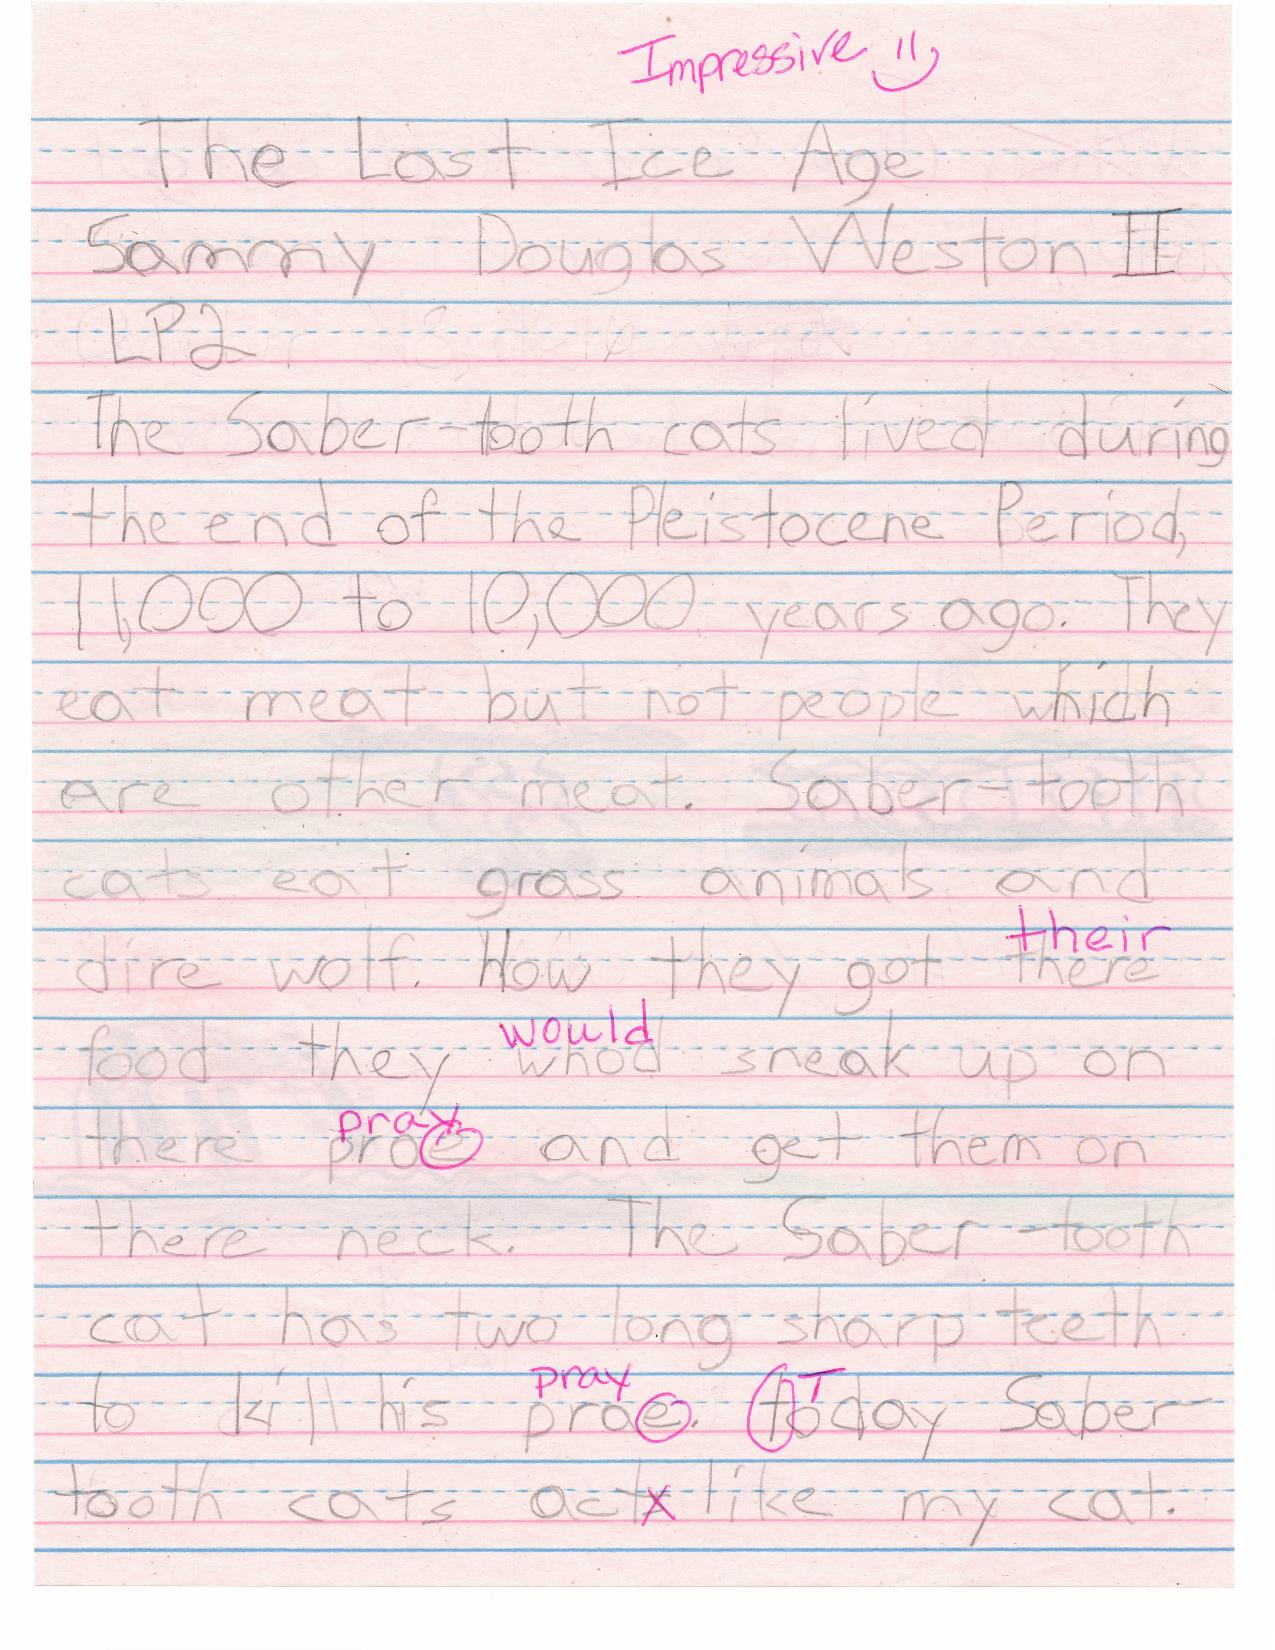 Impressive
The Last Ice Age
Sammy Douglas Weston II
LP2
The Saber-tooth cats lived during
the end of the Pleistocene Period,
11,000 to 10,000 years ago. They
eat meat but not people which
are other meat. Saber-tooth
cats eat grass animals and
their
dire wolf. How they got there
would
food they whod sneak up on
pray
there prae and get them on
there neck. The Saber-tooth
cat has two long sharp teeth
pray T
to kill his prae. today Saber
tooth cats act x like my cat.